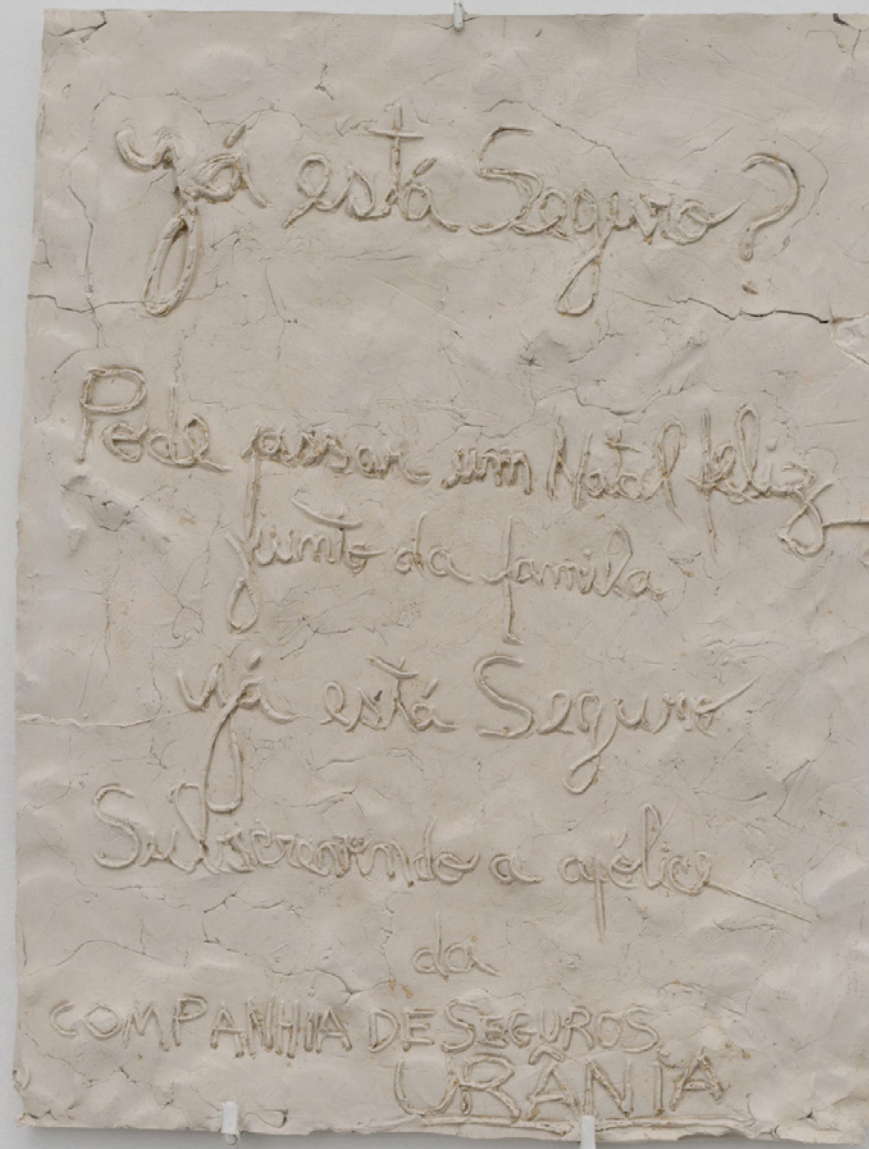 Já está Seguro?
Pode passar um Natal feliz
junto da famila
já está Seguro
Subscrevendo a apólice
da
COMPANHIA DE SEGUROS
URÂNIA